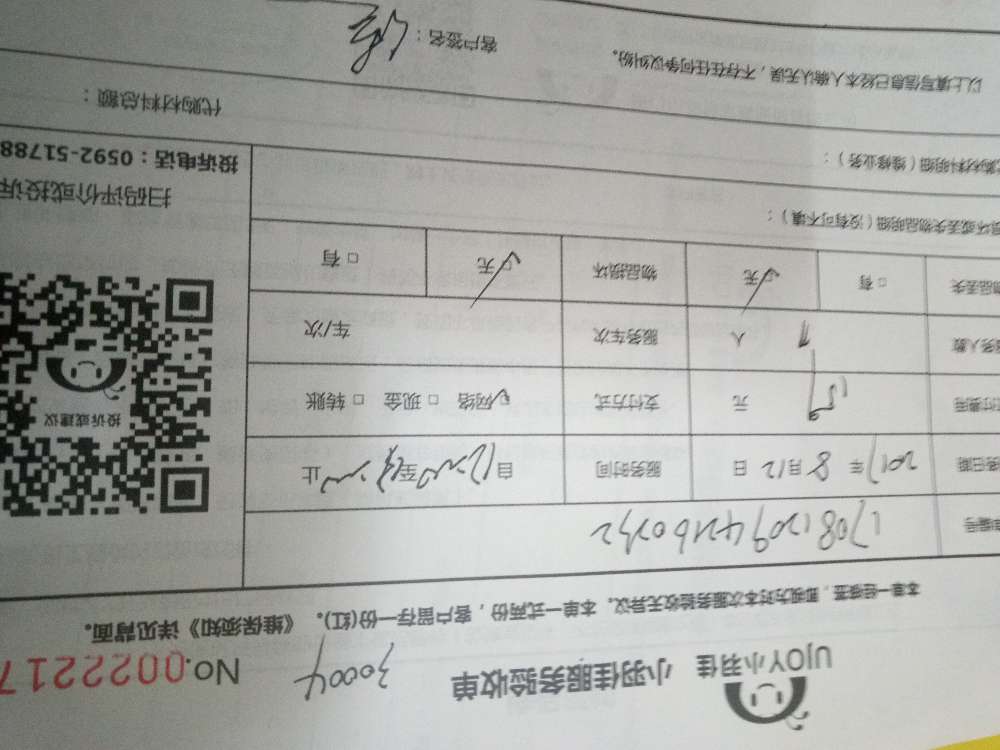 UJOY小羽佳 小羽佳服务验收单 30004 No.0022217
本单一经签署，即视为对本次服务验收无异议。本单一式两份，客户留存一份(红)。《维保须知》详见背面。
编号
务日期 2017年8月12日 服务时间 自 至 止
付费用 元 支付方式 网络 □ 现金 □ 转账
务人数 1 人 服务车次 车/次
物品丢失 □ 有 无 物品损坏 无 □ 有
损坏或丢失物品明细（没有可不填）：
购材料明细（维修业务）：
代购材料总额：
以上填写信息已经本人确认无误，不存在任何争议纠纷。
客户签名：
投诉或建议
扫码评价或投诉
投诉电话：0592-51788